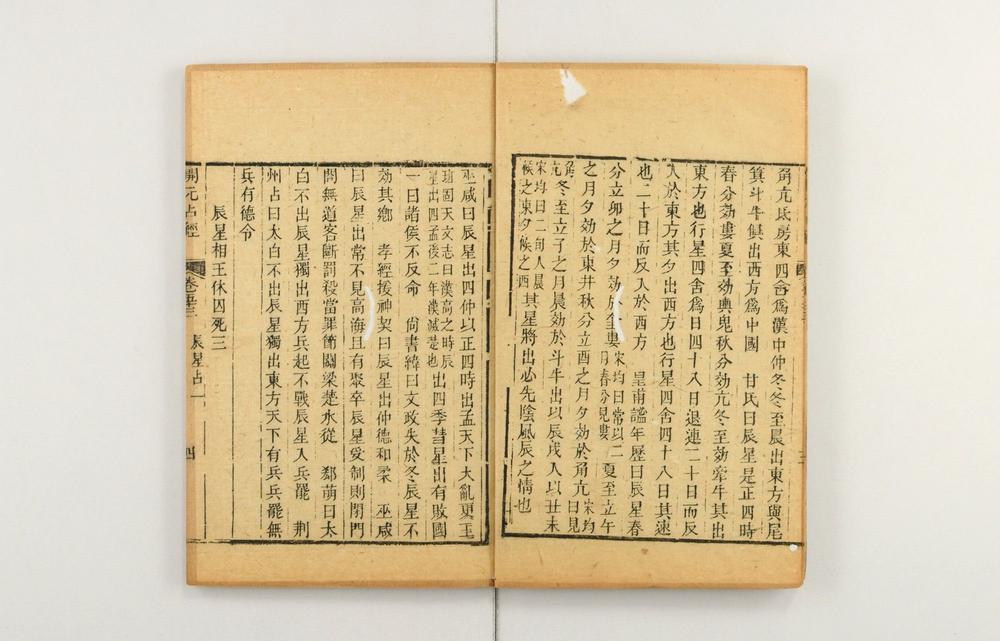 角亢氐房東四舍爲漢中仲冬冬至晨出東方與尾
箕斗牛俱出西方爲中國　甘氏曰辰星是正四時
春分効婁夏至効輿鬼秋分効亢冬至効牽牛其出
東方也行星四舍爲日四十八日退連二十日而反
入於東方其夕出西方也行星四舍四十八日其速
也二十日而反入於西方　皇甫謐年歷曰辰星春
分立卯之月夕効於奎婁宋均曰常以二月春分見婁夏至立午
之月夕効於東井秋分立酉之月夕効於角亢宋均曰見角
亢冬至立子之月晨効於斗牛出以辰戌入以丑未
宋均曰二旬入晨候之東夕候之西其星將出必先陰風辰之情也
巫咸曰辰星出四仲以正四時出孟天下大亂更王
班固天文志曰漢高之時辰星出四孟後二年漢滅楚也出四季彗星出有敗國
一曰諸侯不反命　尚書緯曰文政失於冬辰星不
効其鄉　孝經援神契曰辰星出仲德和柔　巫咸
曰辰星出常不見高海且有聚卒辰星受制則閉門
閭無道客斷罰殺當罪飭關梁楚水從　郄萌曰太
白不出辰星獨出西方兵起不戰辰星入兵罷　荆
州占曰太白不出辰星獨出東方天下有兵兵罷無
兵有德令
辰星相王休囚死三
開元占經
卷五十三
辰星占一
四